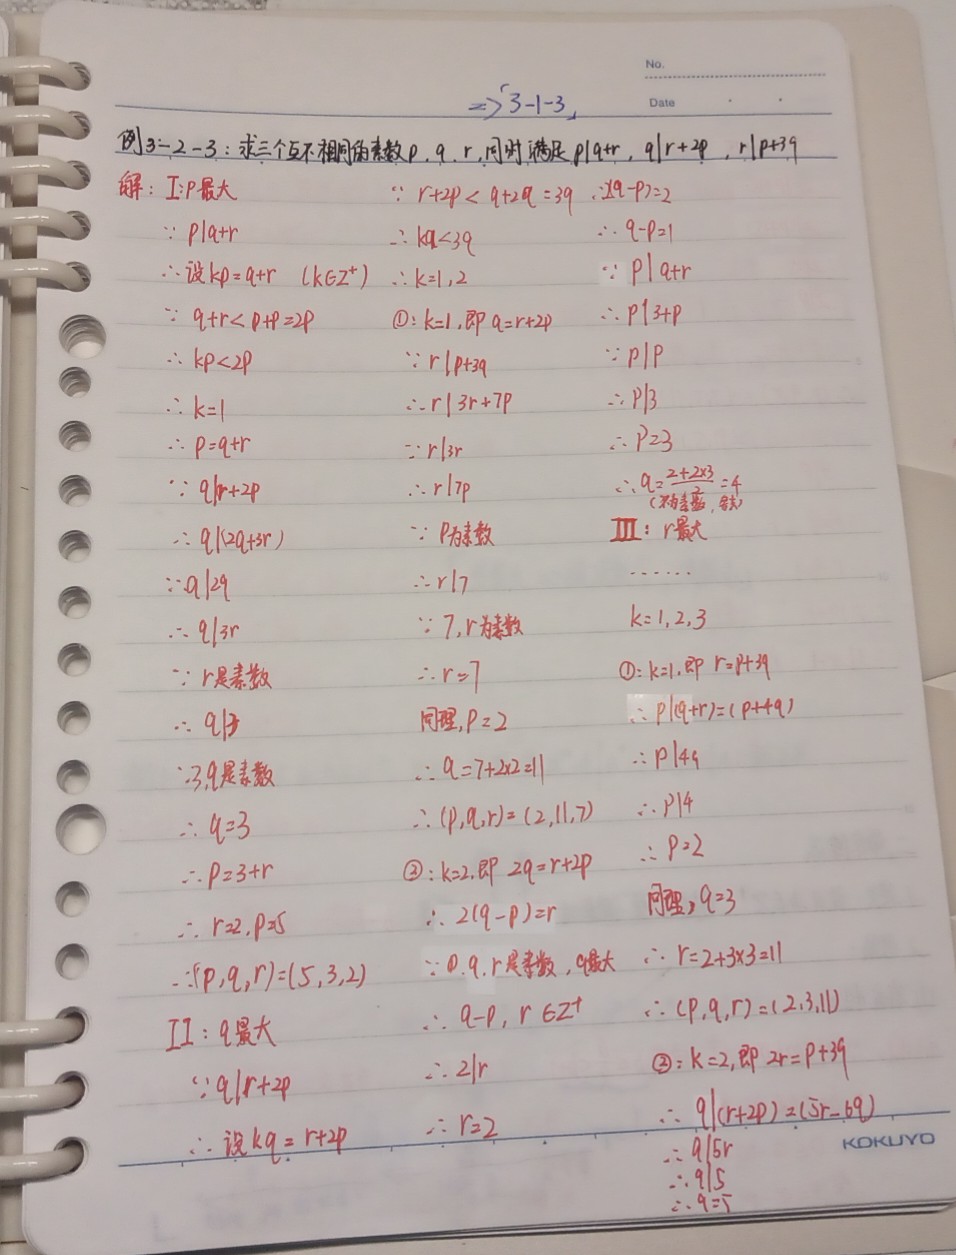 No.
Date
=>「3-1-3」
例3-2-3：求三个互不相同的素数p、q、r，同时满足p|q+r，q|r+2p，r|p+3q
解：I：p最大
∵ p|q+r
∴设kp=q+r （k∈Z⁺）
∵ q+r<p+p=2p
∴ kp<2p
∴ k=1
∴ p=q+r
∵ q|r+2p
∴ q|(2q+3r)
∵q|2q
∴ q|3r
∵ r是素数
∴ q|3
∵3,q是素数
∴ q=3
∴ p=3+r
∴ r=2,p=5
∴(p,q,r)=(5,3,2)
II：q最大
∵q|r+2p
∴ 设kq=r+2p
∵ r+2p<q+2q=3q
∴ kq<3q
∴ k=1,2
①：k=1,即q=r+2p
∵ r|p+3q
∴ r|3r+7p
∵ r|3r
∴ r|7p
∵ p为素数
∴ r|7
∵ 7,r为素数
∴ r=7
同理,p=2
∴ q=7+2×2=11
∴(p,q,r)=(2,11,7)
②：k=2,即 2q=r+2p
∴ 2(q-p)=r
∵p.q.r是素数,q最大
∴ q-p,r∈Z⁺
∴ 2|r
∴ r=2
∴2(q-p)=2
∴ q-p=1
∵ p|q+r
∴ p|3+p
∵ p|p
∴ p|3
∴ p=3
∴q=(2+2×3)/2=4
(不为素数,舍去)
III：r最大
......
k=1,2,3
①：k=1,即r=p+3q
∴ p|(q+r)=(p+4q)
∴ p|4q
∴ p|4
∴ p=2
同理,q=3
∴ r=2+3×3=11
∴(p,q,r)=(2,3,11)
②：k=2,即2r=p+3q
∴ q|(r+2p)=(5r-6q)
∴ q|5r
∴q|5
∴q=5
KOKUYO